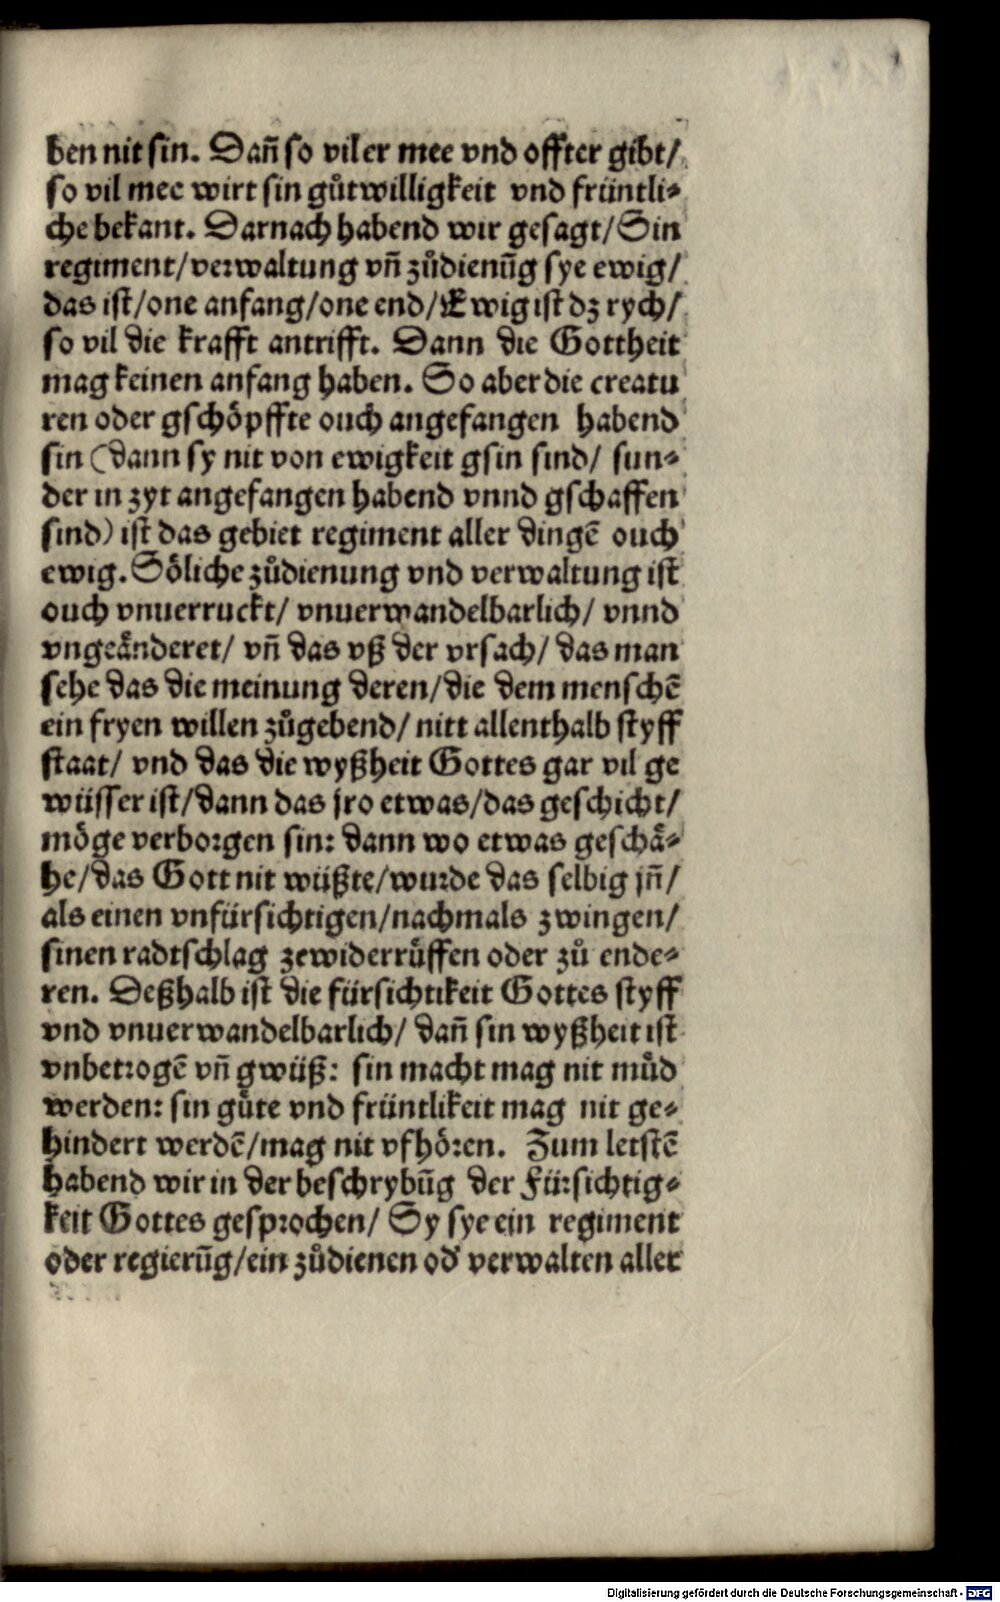 ben nit sin. Dañ so vil er mee vnd offter gibt/
so vil mee wirt sin gůtwilligkeit vnd früntli⸗
che bekant. Darnach habend wir gesagt/ Sin
regiment/ verwaltung vñ zůdienūg sye ewig/
das ist/ one anfang/ one end/ Ewig ist dz rych/
so vil die krafft antrifft. Dann die Gottheit
mag keinen anfang haben. So aber die creatu
ren oder gschöpffte ouch angefangen habend
sin (dann sy nit von ewigkeit gsin sind/ sun⸗
der in zyt angefangen habend vnnd gschaffen
sind) ist das gebiet regiment aller dingē ouch
ewig. Söliche zůdienung vnd verwaltung ist
ouch vnuerruckt/ vnuerwandelbarlich/ vnnd
vngeänderet/ vñ das vß der vrsach/ das man
sehe das die meinung deren/ die dem menschē
ein fryen willen zůgebend/ nitt allenthalb styff
staat/ vnd das die wyßheit Gottes gar vil ge
wüsser ist/ dann das jro etwas/ das geschicht/
möge verborgen sin: dann wo etwas geschä⸗
he/ das Gott nit wüßte/ wurde das selbig jñ/
als einen vnfürsichtigen/ nachmals zwingen/
sinen radtschlag zewiderrůffen oder zů ende⸗
ren. Deßhalb ist die fürsichtikeit Gottes styff
vnd vnuerwandelbarlich/ dañ sin wyßheit ist
vnbetrogē vñ gwüß: sin macht mag nit můd
werden: sin gůte vnd früntlikeit mag nit ge⸗
hindert werdē/ mag nit vfhören. Zum letstē
habend wir in der beschrybūg der Fürsichtig⸗
keit Gottes gesprochen/ Sy sye ein regiment
oder regierūg/ ein zůdienen od' verwalten aller
Digitalisierung gefördert durch die Deutsche Forschungsgemeinschaft - DFG